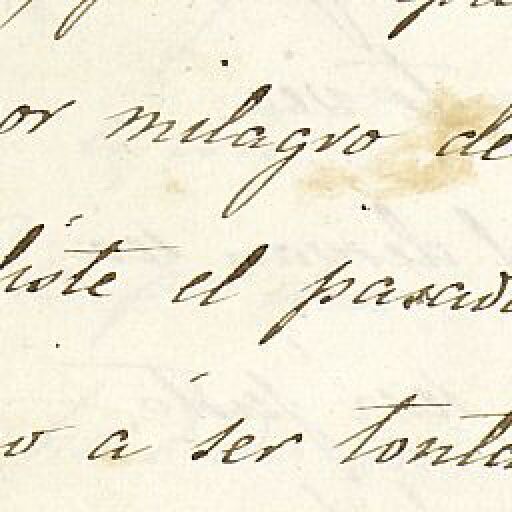 or milagro de
liste el pasado
o á ser tonta